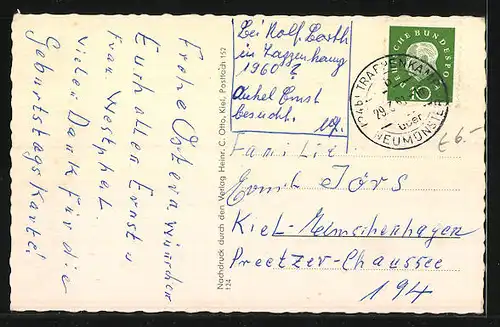 Frohe Ostern wünschen
Euch allen Ernst u
Frau Westphal.
Vielen Dank für die
Geburtstagskarte!
Nachdruck durch den Verlag Heinr. C. Otto, Kiel, Postfach 152
124
Bei Rolf Barth
in
1960 ?
Onkel Ernst
besucht.
DEUTSCHE BUNDESPOST
10
(24b) TRAPPENKAMP
29.3.
über
NEUMÜNSTER
€ 6.-
Familie
Emil Jörs
Kiel-Elmschenhagen
Preetzer-Chaussee
194